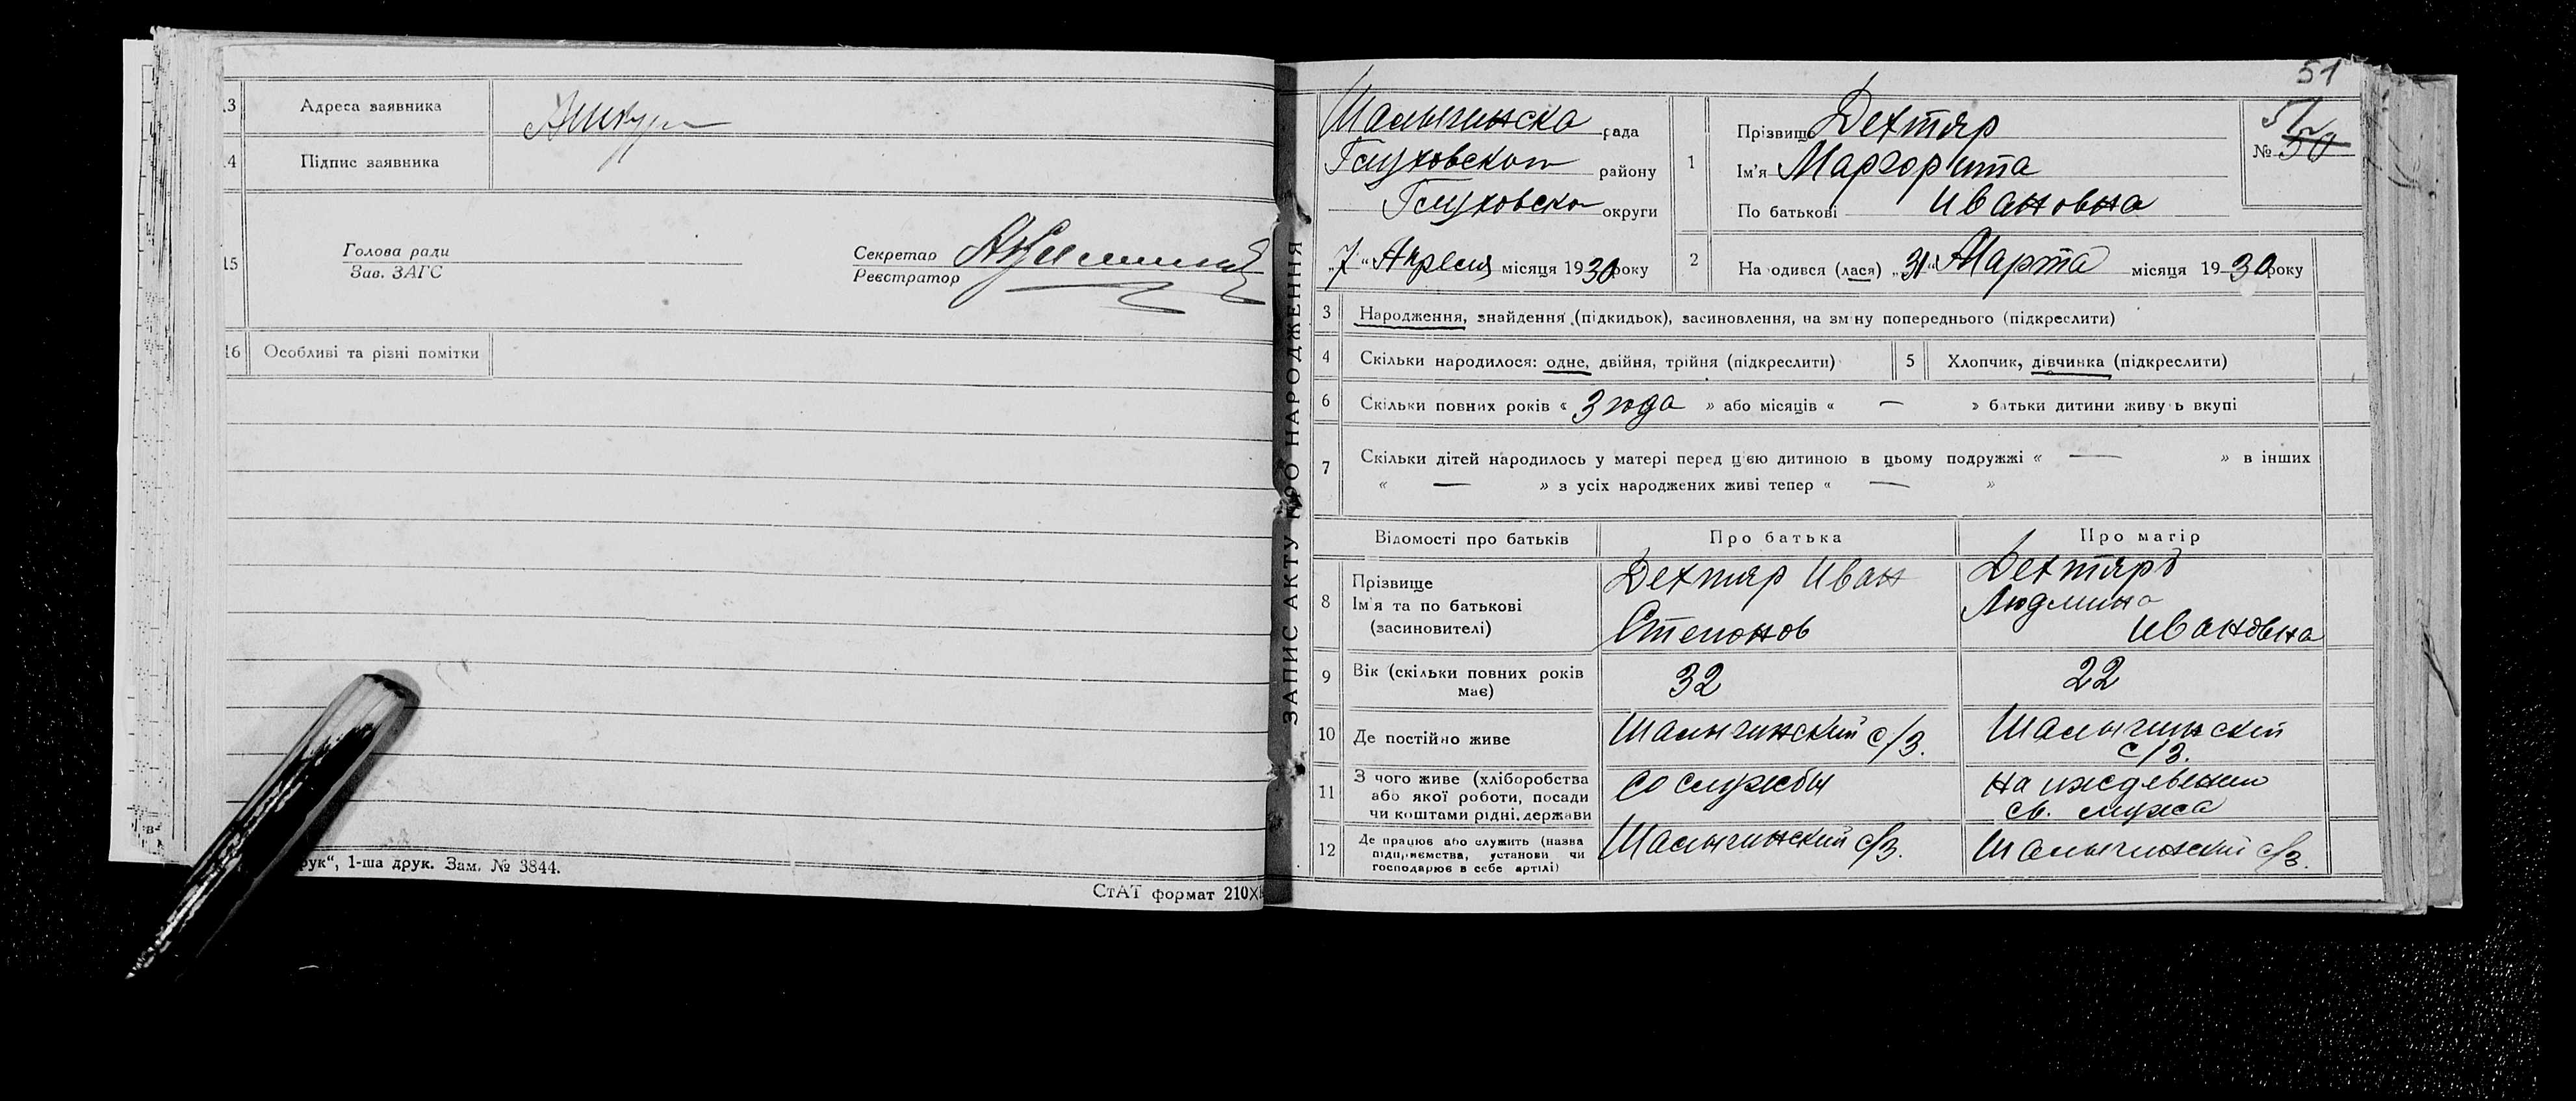 13 Адреса заявника
14 Підпис заявника
15 Голова ради
Зав. ЗАГС
Секретар
Реєстратор
16 Особливі та різні помітки
рук“, 1-ша друк. Зам. № 3844.
СтАТ формат 210X
ЗАПИС АКТУ ПРО НАРОДЖЕННЯ
51
Шалыгинска рада
Глуховского району
Глуховско округи
„7“ Апреля місяця 1930 року
1 Прізвище Дехтяр
Ім'я Маргорита
По батькові Ивановна
51
№ 50
2 На одився (лася) „31“ Марта місяця 1930 року
3 Народження, знайдення (підкидьок), засиновлення, на зміну попереднього (підкреслити)
4 Скільки народилося: одне, двійня, трійня (підкреслити)
5 Хлопчик, дівчинка (підкреслити)
6 Скільки повних років « 3 года » або місяців « — » батьки дитини живуть вкупі
7 Скільки дітей народилось у матері перед цією дитиною в цьому подружжі « — » в інших
« — » з усіх народжених живі тепер « — »
Відомості про батьків Про батька Про матір
8 Прізвище
Ім'я та по батькові
(засиновителі)
Дехтяр Иван
Степонов
Дехтярь
Людмина
Ивановна
9 Вік (скільки повних років має) 32 22
10 Де постійно живе Шалыгинский с/з. Шалыгинский с/з.
11 З чого живе (хліборобства
або якої роботи, посади
чи коштами рідні, держави
со службы
на иждевении
св. мужа
12 Де працює або служить (назва
підприємства, установи чи
господарює в себе артілі)
Шалыгинский с/з.
Шалыгинский с/з.